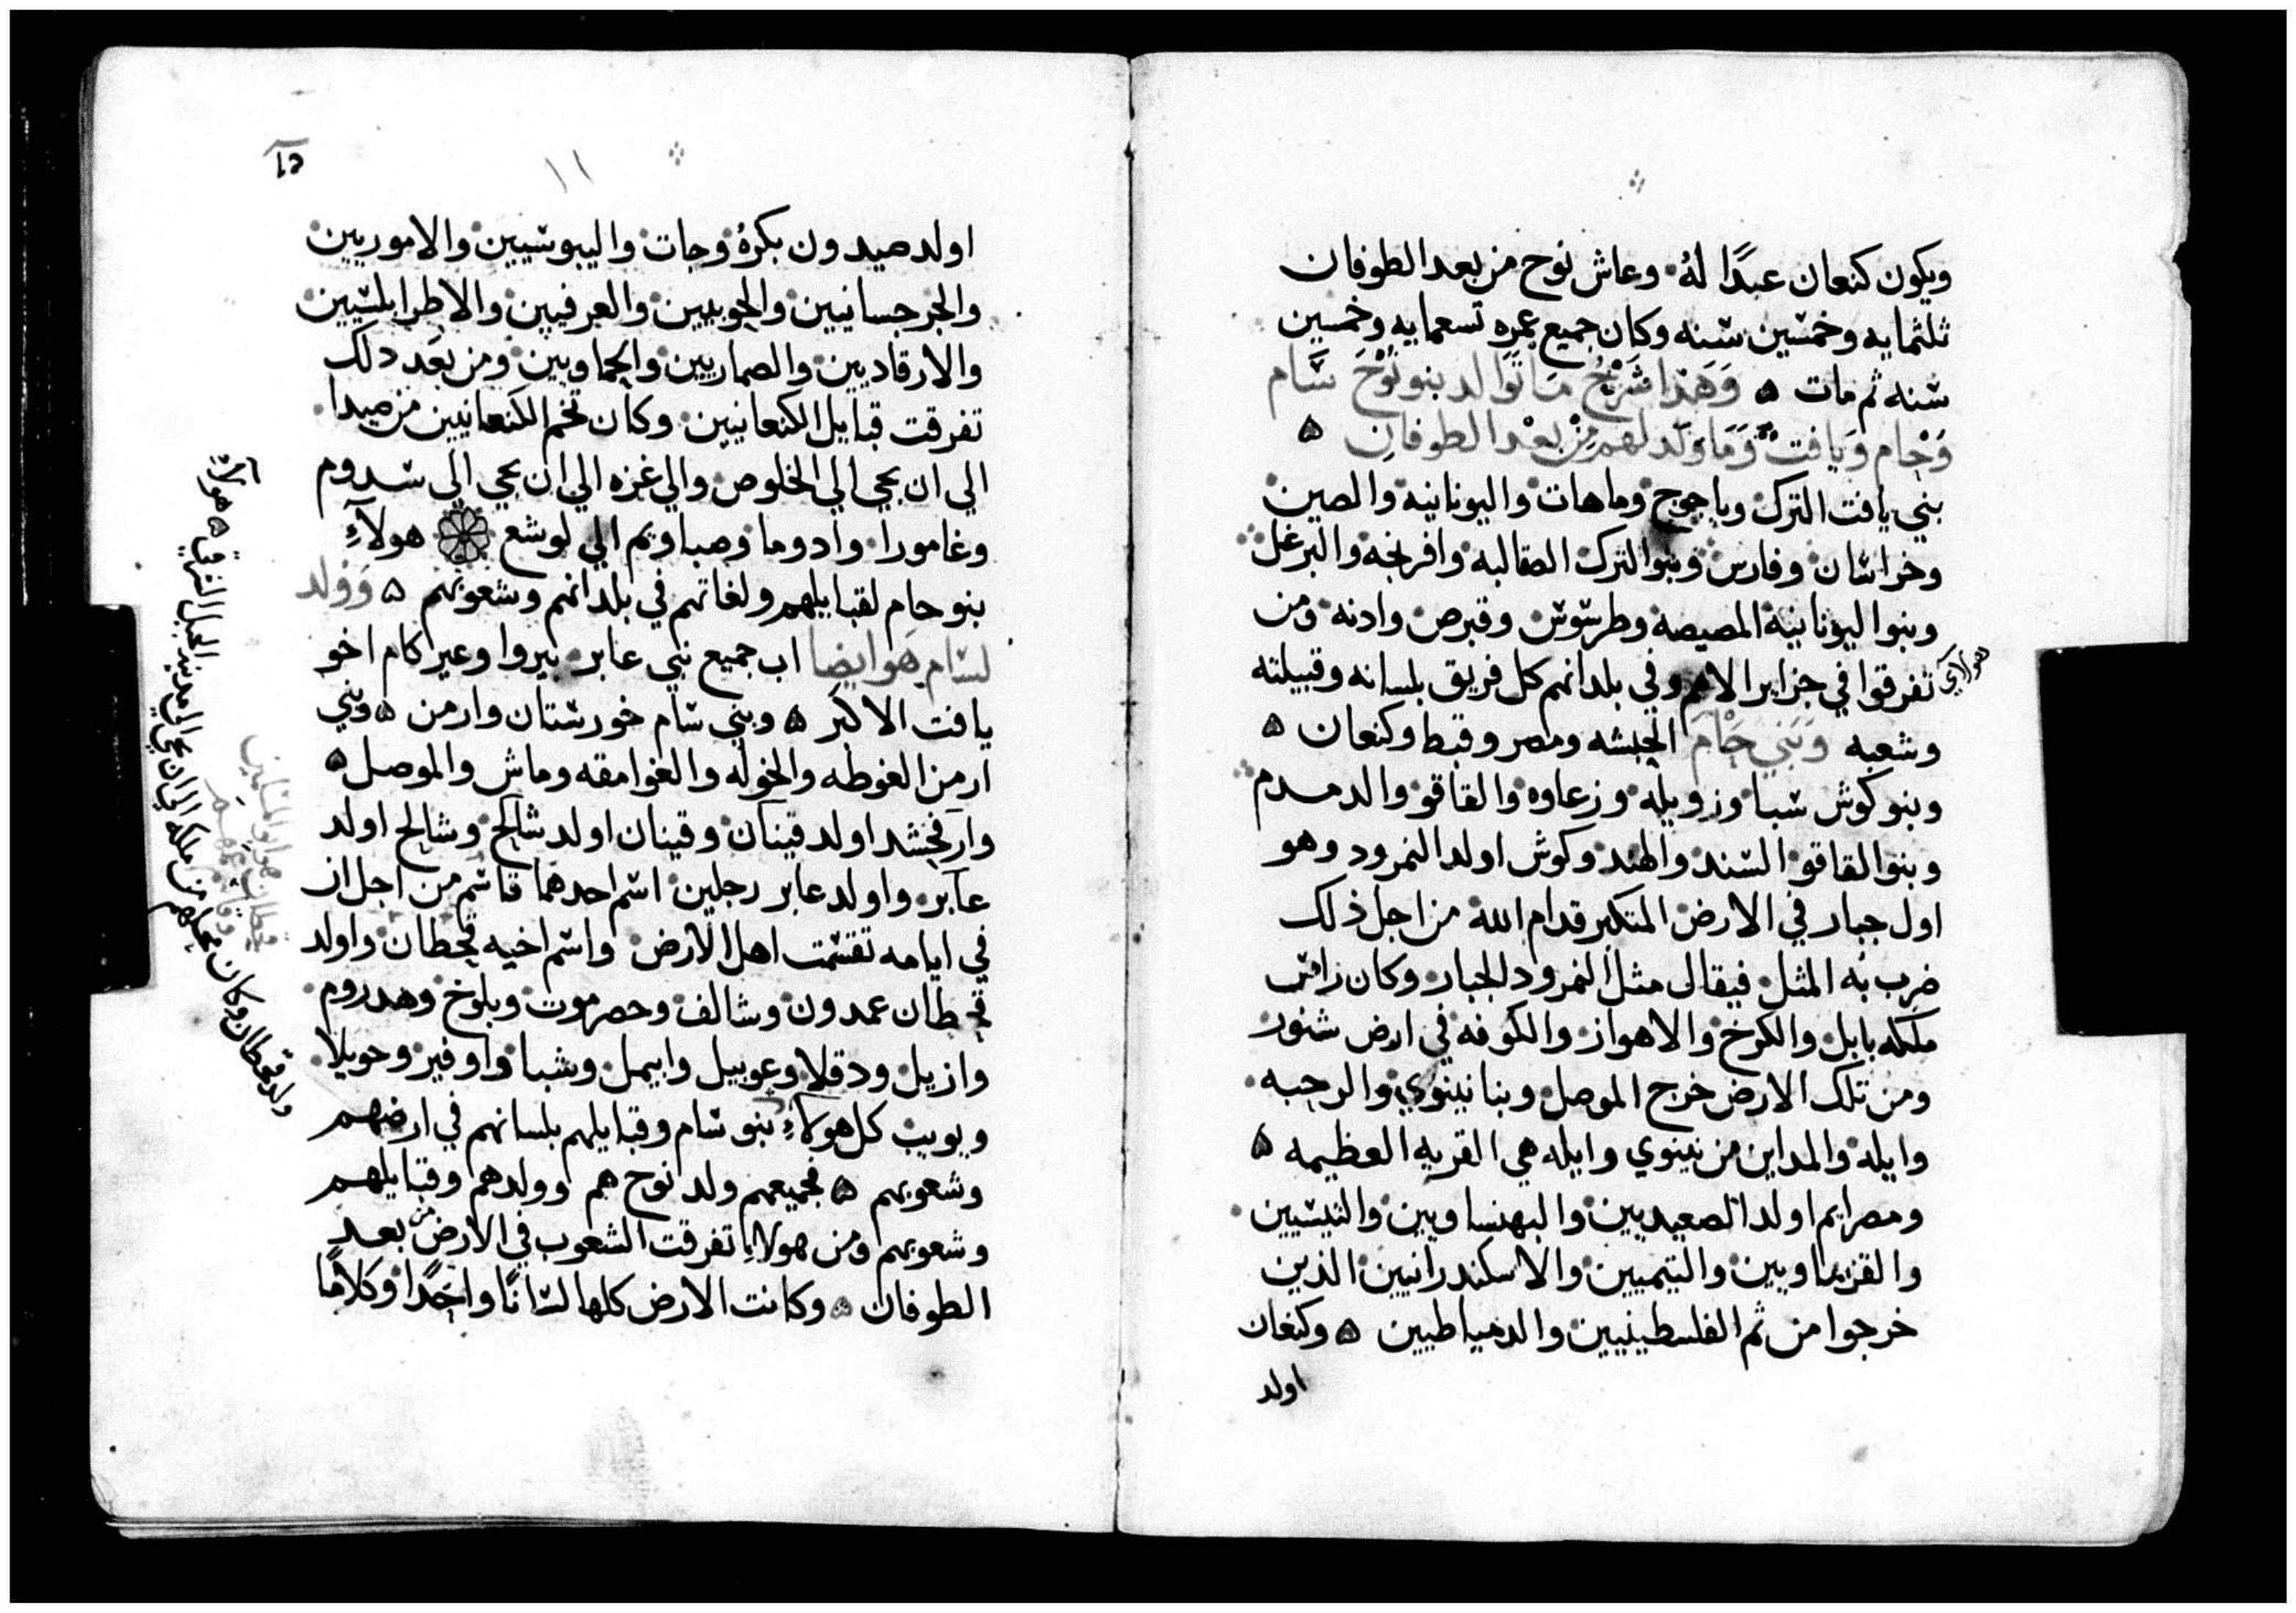 ويكون كنعان عبدًا لهُ وعاش نوح من بعد الطوفان
ثلثمايه وخمسين سنه وكان جميع عمره تسعمايه وخمسين
سنه ثم مات ۵ وَهَذا شَرْحُ مَا تَوَالد بنو نُوْحَ سَام
وَحَام وَيافت وَمَا وَلد لهم مِنْ بعْد الطوفان ۵
بني يافت الترك وياجوج وماهات واليونانيه والصين
وخراسان وفارس وبنو الترك الصقالبه وافرنجه والبرغل
وبنوا اليونانية المصيصه وطرسوس وقبرص وادنه ومن
هولاي
تفرقوا في جزاير الامم وفي بلدانهم كل فريق بلسانه وقبيلته
وشعبه وَبَني حَامَ الحبشه ومصر وقبط وكنعان ۵
وبنو كوش سبا وزويله وزعاوه والقاقو والدمدم
وبنوا القاقو السند والهند وكوش اولد النمرود وهو
اول جبار في الارض المتكبر قدام الله من اجل ذلك
ضرب به المثل فيقال مثل النمرود الجبار وكان راس
ملكه بابل والكرخ والاهواز والكوفه في ارض شنور
ومن تلك الارض خرج الموصل وبنا نينوي والرحبه
وايله والمداين من نينوي وايله هي القريه العظيمه ۵
ومصرايم اولد الصعيديين والبهنساويين والنيسيين
والتيميين والاسكندرانيين الذين
خرجوا من ثم الفلسطينيين والدمياطيين ۵ وكنعان
اولد
١١
اولد صيدون بكرهُ وحات واليبوسيين والاموريين
والجرجسانيين والحويين والعرقيين والاطرابلسيين
والارقاديين والصماريين والحماويين ومن بعَد دلك
تفرقت قبايل الكنعانيين وكان تخم الكنعانيين من صيدا
الي ان يجي الي الخلوص والي غزه الي ان يجي الي سدوم
وغامورا وادوما وصباويم الي لوشع هولآءِ
بنو حام لقبايلهم ولغاتهم في بلدانهم وشعوبهم ۵ وَوُلد
لسَام هَو ايضا اب جميع بني عابر نيروا وعيراكام اخو
يافت الاكبر ۵ وبني سام خورستان وارمن ۵ وبني
ارمن الغوطه والخوله والغوامقه وماش والموصل ۵
وارفخشد اولد قينان وقينان اولد شالح وشالح اولد
عابر واولد عابر رجلين اسم احدهما قاسم من اجل ان
في ايامه تقسمت اهل الارض واسم اخيه قحطان واولد
قحطان عمدون وشالف وحصرموت وبلوخ وهدروم
وازيل ودقلا وعوبيل وابيمل وشبا واوفير وحويلا
ويوبب كل هولآءِ بنو سام وقبايلهم بلسانهم في ارضهم
وشعوبهم ۵ فجميعهم ولد نوح هم وولدهم وقبايلهم
وشعوبهم ومن هولاء تفرقت الشعوب في الارض من بعد
الطوفان ۵ وكانت الارض كلها لسانًا واحدًا وكلامًا
هولاء
ولد قحطان وكان محلهم من ملكه الي ان يجي الي مدينه الجبل الشرقي ۵